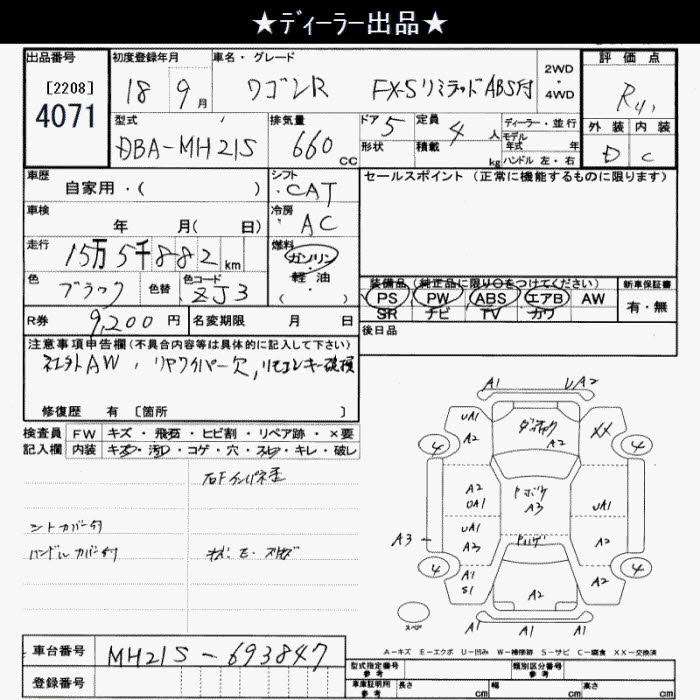 ★ディーラー出品★
出品番号 初度登録年月 車名・グレード 評価点
[2208]
4071
18年 9月 ワゴンR FX-Sリミテッド ABS付 2WD・4WD R
型式 排気量 ドア 定員 ディーラー・並行 外装 内装
DBA-MH21S 660 CC 5 4人 モデル年式 年 D C
形状 積載 kg ハンドル 左・右
車歴 シフト セールスポイント (正常に機能するものに限ります)
自家用・( ) CAT
車検 冷房
年 月( 日) AC
走行 燃料
15万5千882 km ガソリン・軽油
色 色替 色コード ( )
ブラック ZJ3
装備品 (純正品に限り○をつけてください) 新車保証書
PS PW ABS エアB AW 有・無
SR ナビ TV カワ
R券 9,200円 名変期限 月 日 後日品
注意事項申告欄(不具合内容等は具体的に記入して下さい)
社外AW、リヤワイパー欠、リモコンキー破損
修復歴 有 [箇所 ]
検査員 FW キズ・飛石・ヒビ割・リペア跡・×要
記入欄 内装 キズ・汚レ・コゲ・穴・スレ・キレ・破レ
シートカバー付
ハンドルカバー付
A1 UA2
UA1 A2 A2 XX
4 4
A2 UA1 A3 UA1
A3 UA1 A3 A2
4 4
A1 S1 A2 A2
A1 A1 A1
スペア
A-キズ E-エクボ U-凹み W-補修跡 S-サビ C-腐食 XX-交換済
車台番号 MH21S-693847
登録番号
型式指定番号 参考 類別区分番号 参考
車庫証明用 参考 長さ cm 幅 cm 高さ cm